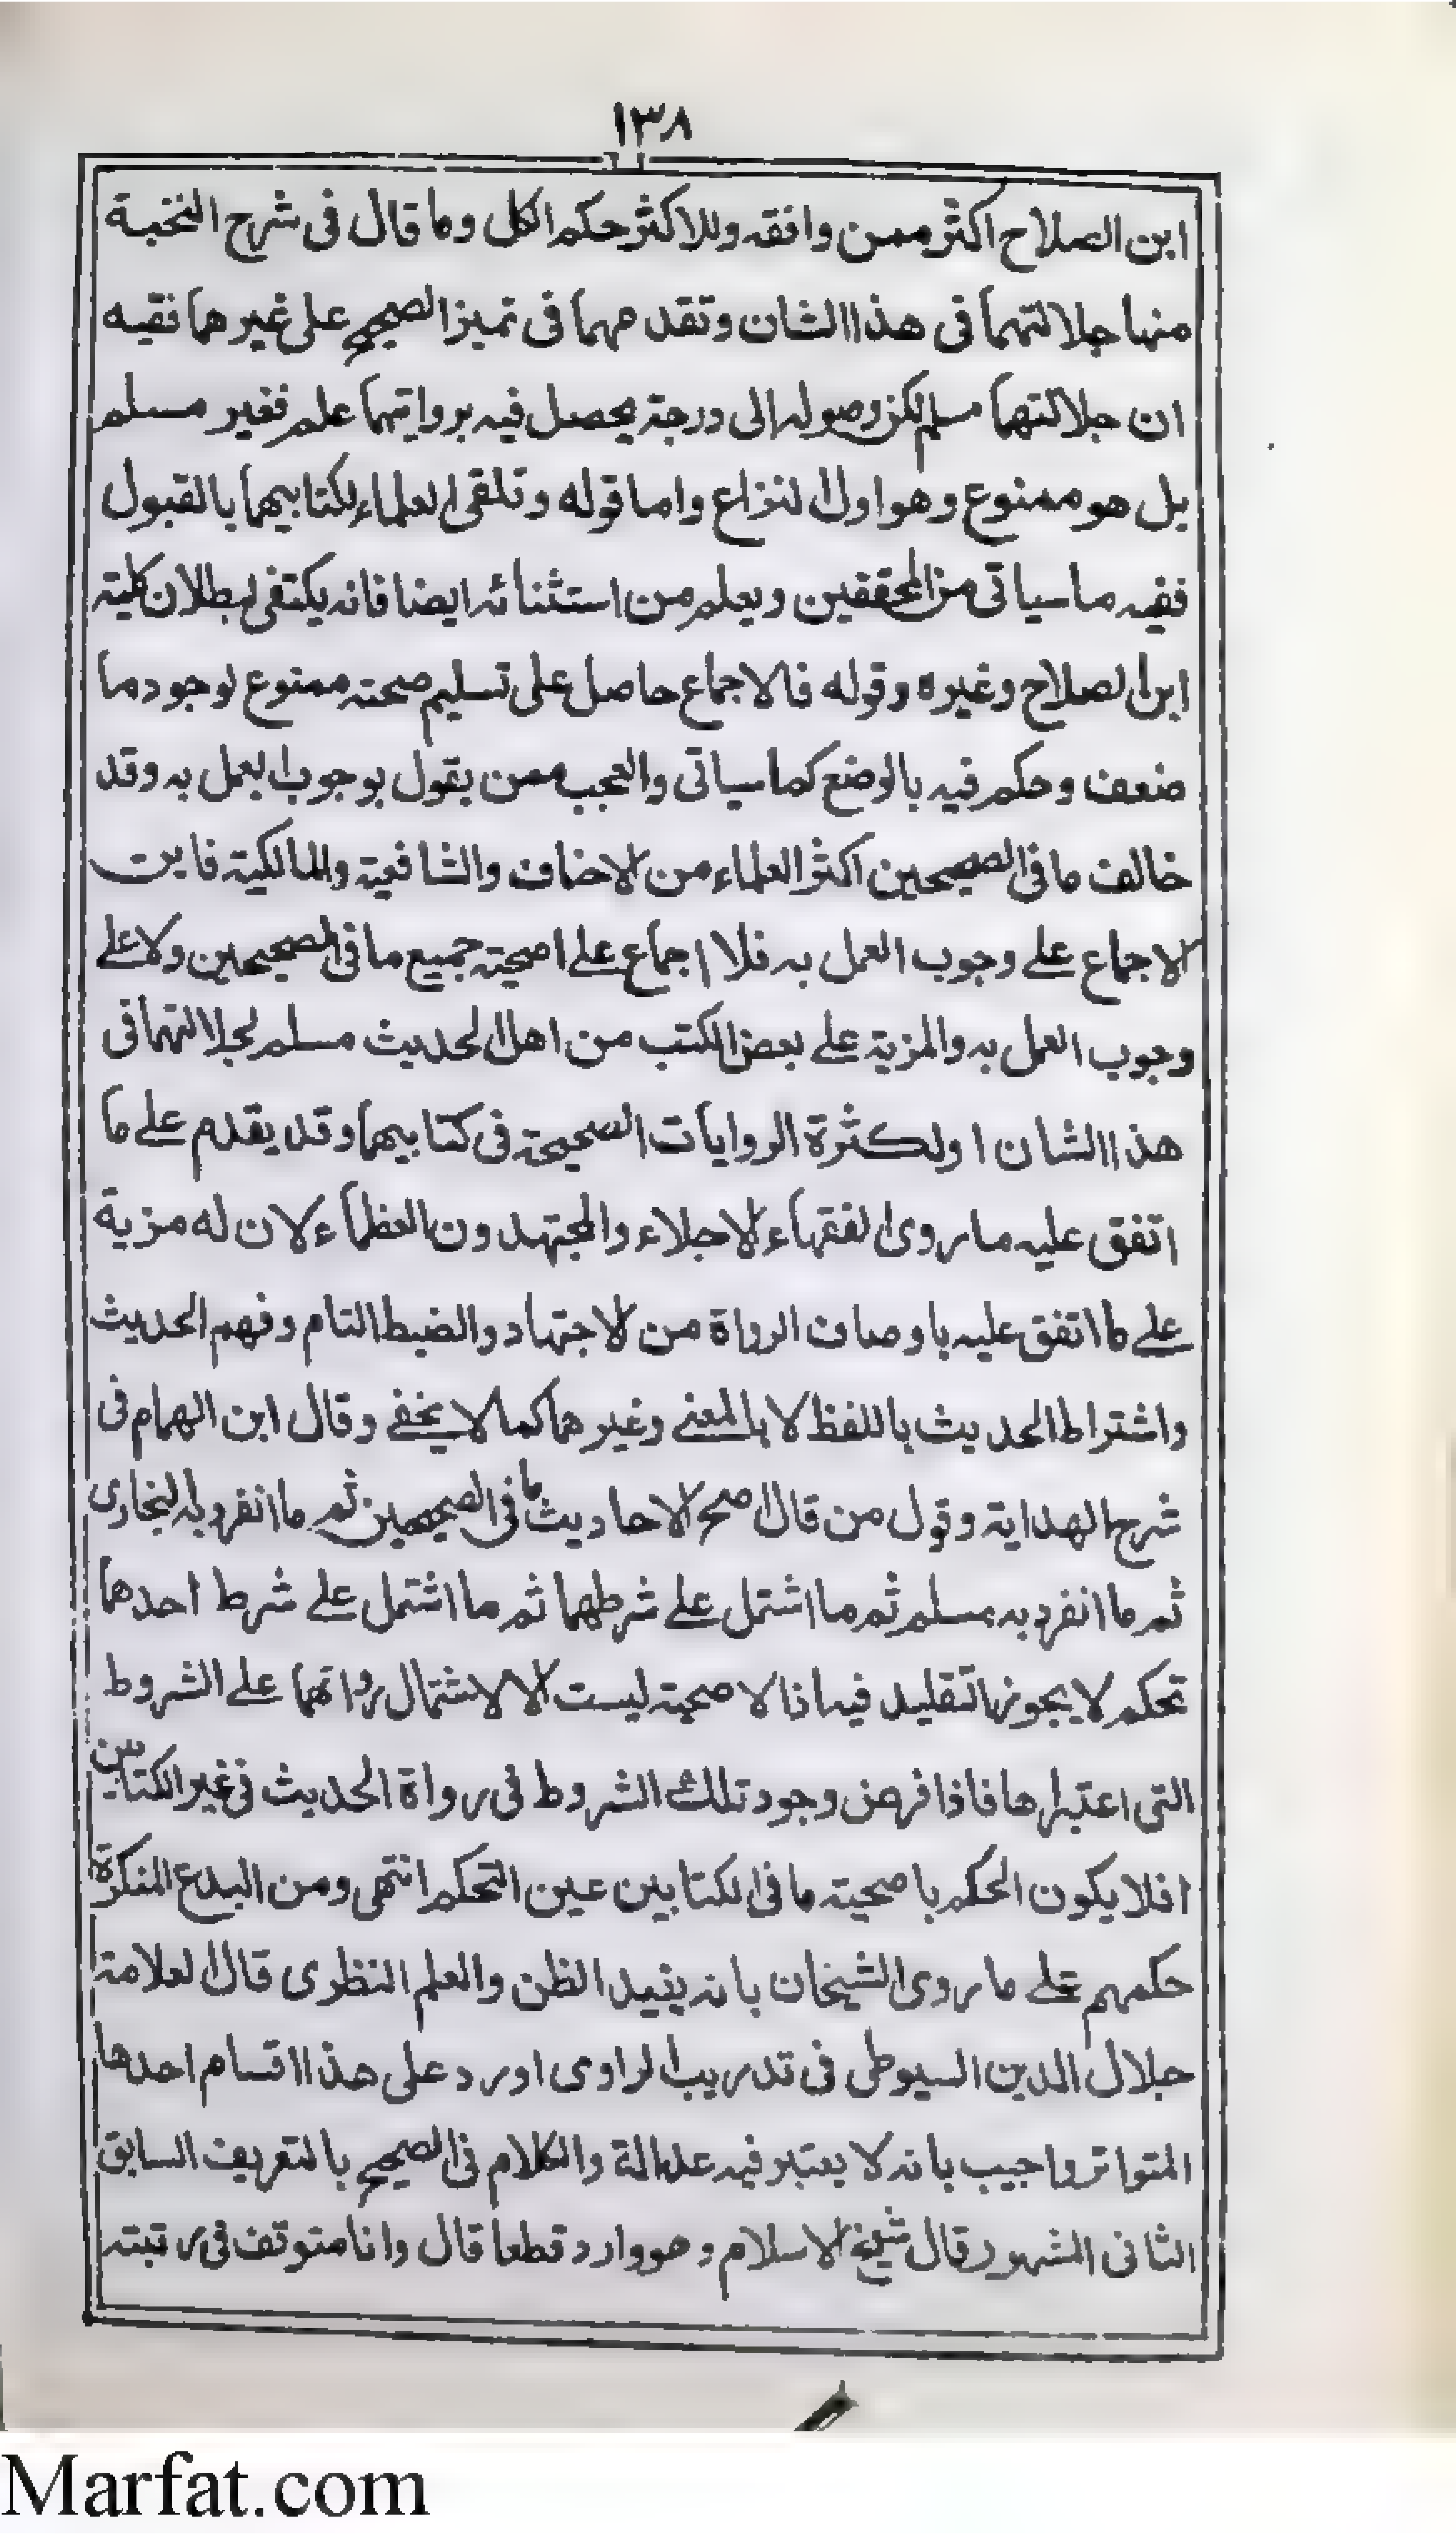 ١٣٨
ابن الصلاح اكثر ممن وافقه وللاكثر حكم الكل وما قال فى شرح النخبة
منها جلالتهما فى هذا الشان وتقدمهما فى تميز الصحيح على غيرهما فقيه
ان جلالتهما مسلم لكن وصوله الى درجة يحصل فيه بروايتهما علم فغير مسلم
بل هو ممنوع وهو اول النزاع واما قوله وتلقى العلماء لكتابيهما بالقبول
ففيه ما سياتى من المحققين ويعلم من استثنائه ايضا فانه يكتفى لبطلان كلية
ابن الصلاح وغيره وقوله فالاجماع حاصل على تسليم صحته ممنوع لوجود ما
ضعف وحكم فيه بالوضع كما سياتى والعجب ممن يقول بوجوب العمل به وقد
خالف ما فى الصحيحين اكثر العلماء من الاحناف والشافعية والمالكية فاين
الاجماع على وجوب العمل به فلا اجماع على اصحية جميع ما فى الصحيحين ولا على
وجوب العمل به والمزية على بعض الكتب من اهل الحديث مسلم لجلالتهما فى
هذا الشان اولكثرة الروايات الصحيحة فى كتابيهما وقد يقدم على ما
اتفق عليه ما روى الفقهاء الاجلاء والمجتهدون العظماء لان له مزية
على ما اتفق عليه باوصاف الرواة من الاجتهاد والضبط التام وفهم الحديث
واشتراط الحديث باللفظ لا بالمعنى وغيرهما كما لا يخفى وقال ابن الهمام فى
شرح الهداية وقول من قال اصح الاحاديث ما فى الصحيحين ثم ما انفرد به البخارى
ثم ما انفرد به مسلم ثم ما اشتمل على شرطهما ثم ما اشتمل على شرط احدهما
تحكم لا يجوز التقليد فيه اذ الاصحية ليست الا لاشتمال رواتهما على الشروط
التى اعتبراها فاذا فرض وجود تلك الشروط فى رواة الحديث فى غير الكتابين
افلا يكون الحكم باصحية ما فى الكتابين عين التحكم انتهى ومن البدع المنكرة
حكمهم على ما روى الشيخان بانه يفيد الظن والعلم النظرى قال العلامة
جلال الدين السيوطى فى تدريب الراوى اورد على هذا اقسام احدها
المتواتر واجيب بانه لا يعتبر فيه عدالة والكلام فى الصحيح بالتعريف السابق
الثانى المشهور قال شيخ الاسلام وهو وارد قطعا قال وانا متوقف فى رتبته
Marfat.com